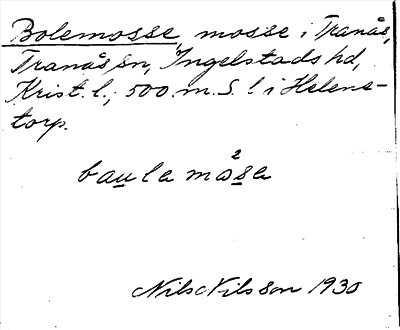 Bolemosse, mosse i Tranås,
Tranås sn, Ingelstads hd,
Krist. l., 500 m. S. l. i Helens-
torp.
baulamåsa
Nils Nilsson 1930